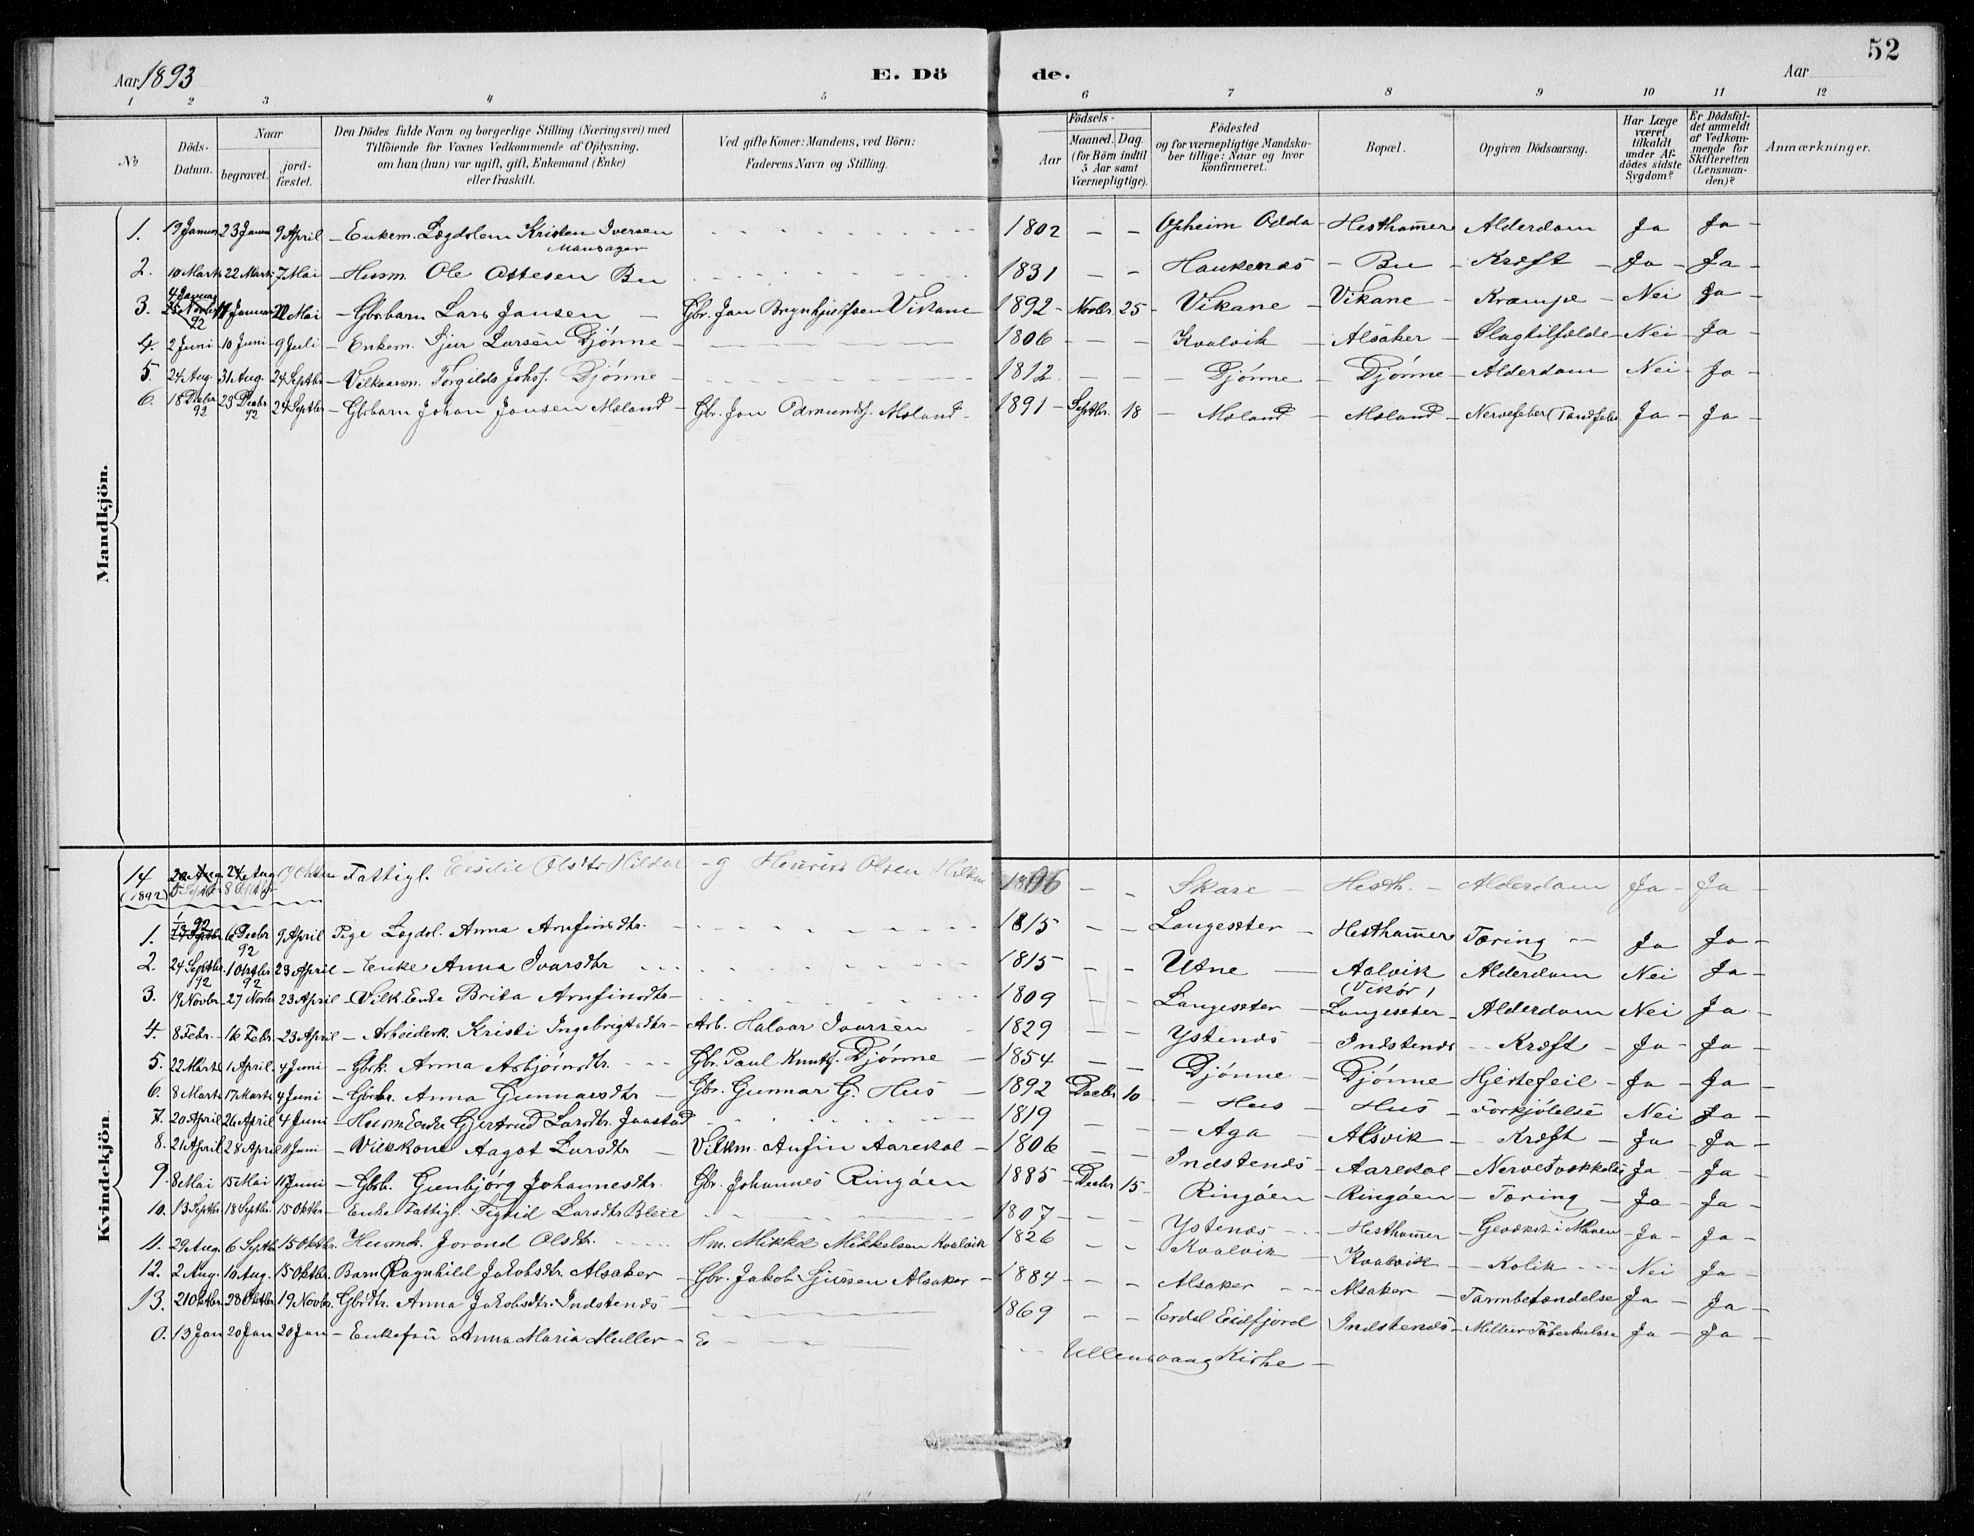 52
Aar 1893 E. Dö de. Aar
1 2 3 4 5 6 7 8 9 10 11 12
No Döds-Datum. Naar begravet. jordfæstet. Den Dödes fulde Navn og borgerlige Stilling (Næringsvei) med Tilföiende for Voxnes Vedkommende af Oplysning, om han (hun) var ugift, gift, Enkemand (Enke) eller fraskilt. Ved gifte Koner: Mandens, ved Börn: Faderens Navn og Stilling. Födsels- Aar Maaned. Dag. (for Börn indtil 5 Aar samt Værnepligtige). Födested og for værnepligtige Mandskaber tillige: Naar og hvor konfirmeret. Bopæl. Opgiven Dödsaarsag. Har Læge været tilkaldt under Afdödes sidste Sygdom? Er Dödsfaldet anmeldt af Vedkommende for Skifteretten (Lensmanden)? Anmærkninger.
Mandkjön.
1. 19 Januar 23 Januar 9 April – Enkem. Lægdslem Kristen Iversen Mausager 1802 – – Opheim Odda – Hesthamer Alderdom Ja Ja –
2. 10 Marts 22 Marts 7 Mai – Husm. Ole Ottesen Bu 1831 – – Haukenæs – Bu – Kræft – Ja – Ja –
3. 4 Januar 11 Januar 22 Mai – Gbrbarn Lars Jansen – Gbr. Jan Brynhjulfsen Vikane 1892 – Novbr. 25 – Vikane – Vikane – Krampe – Nei Ja –
4. 2 Juni – 10 Juni – 9 Juli – Enkem. Sjur Larsen Djønne – 1806 – – – Kvalvik – Alsaker – Slagtilfælde – Nei – Ja –
5. 24 Aug. 31 Aug. 24 Septbr – Vilkaarsm. Torgilds Johs. Djønne – 1812 – – – Djønne – Djønne – Alderdom Nei – Ja –
6. 18 Decbr 92 23 Decbr 92 24 Septbr – Gbrbarn Johan Jansen Maland – Gbr. Jon Odmunds. Maland – 1891 – Septbr. 18 – Maland – Maland – Nervefeber (Tandfeber Ja – Ja –
Kvindekjön
14 (1892) 24 Aug 8 Septbr Fattigl. Cecilie Olsdtr Hildal – g Henrik Olsen Hildal 1806 – – Skare – Hesth. – Alderdom Ja – Ja –
1. 92 6 Decbr 92 9 April Pige Lægdsl. Anna Arnfinsdtr. 1815 – – Langesæter – Hesthamer Tæring – Ja Ja –
2. 24 Septbr. 92 1 Oktbr 92 23 April – Enke Anna Ivarsdtr 1815 – – Utne – Aalvik (Vikør) Alderdom Nei Ja –
3. 19 Novbr. 27 Novbr 23 April – Vilk Enke Brita Arnfinsdtr – 1809 – – Langesæter – Langesæter – Alderdom Nei Ja –
4. 8 Febr. – 16 Febr. – 23 April – Arbeiderk. Kristi Ingebrigtsdtr – Arb. Halvar Ivarsen 1829 – – Ystenæs – Indstenæs – Kræft – Ja – Ja –
5. 22 Marts 1 April 4 Juni – Gbrk. Anna Asbjørnsdtr. – Gbr. Paul Knuts. Djønne – 1854 – – Djønne – Djønne Hjertefeil – Ja – Ja –
6. 8 Marts 17 Marts 4 Juni – Gbrbr. Anna Gunnarsdtr – Gbr. Gunnar G. Hus – 1892 Decbr 10 – Hus – Hus – Forkjølelse Nei Ja –
7. 20 April 26 April 4 Juni – Husm Enke Gjertrud Larsdtr. Jaastad 1819 – – Aga – Alsvik – Kræft – Ja – Ja –
8. 21 April 28 April 11 Juni – Vilkkone Aagot Larsdtr – Vilkm. Anfin Aarekol – 1806 – – Indstenæs – Aarekol – Ja – Ja –
9. 8 Mai 15 Mai 11 Juni – Gbrb. Gunbjörg Johannesdtr. Gbr. Johannes Ringøen 1885 – Decbr 15 – Ringøen – Ringøen – Tæring – Ja – Ja –
10. 13 Septbr. 18 Septbr. 15 Oktbr – Enke Fattigl. Sigrid Larsdtr Bleie 1807 – – – Ystenæs – Hesthamer – Ja – Ja –
11. 29 Aug. 6 Septbr. 15 Oktbr. Husmk. Jorond Olsdtr. Hm. Mikkel Mikkelsen Kvalvik 1826 – – Kvalvik – Kvalvik – Kolik – Nei Ja –
12. 2 Aug. 10 Aug. 15 Oktbr. Barn Ragnhild Jakobsdtr. Alsaker – Gbr. Jakob Sjursen Alsaker – 1884 – – – Alsaker – Alsaker – Tarmbetændelse Ja – Ja –
13. 21 Oktbr. 28 Oktbr. 19 Novbr. Gbrdtr. Anna Jakobsdtr. Indstenæs – 1869 – – Erdal Eidfjord Indstenæs – Ja – Ja –
0. 13 Jan 20 Jan 20 Jan – Enkefru Anna Maria Muller – E – Ullensvang Kirke –